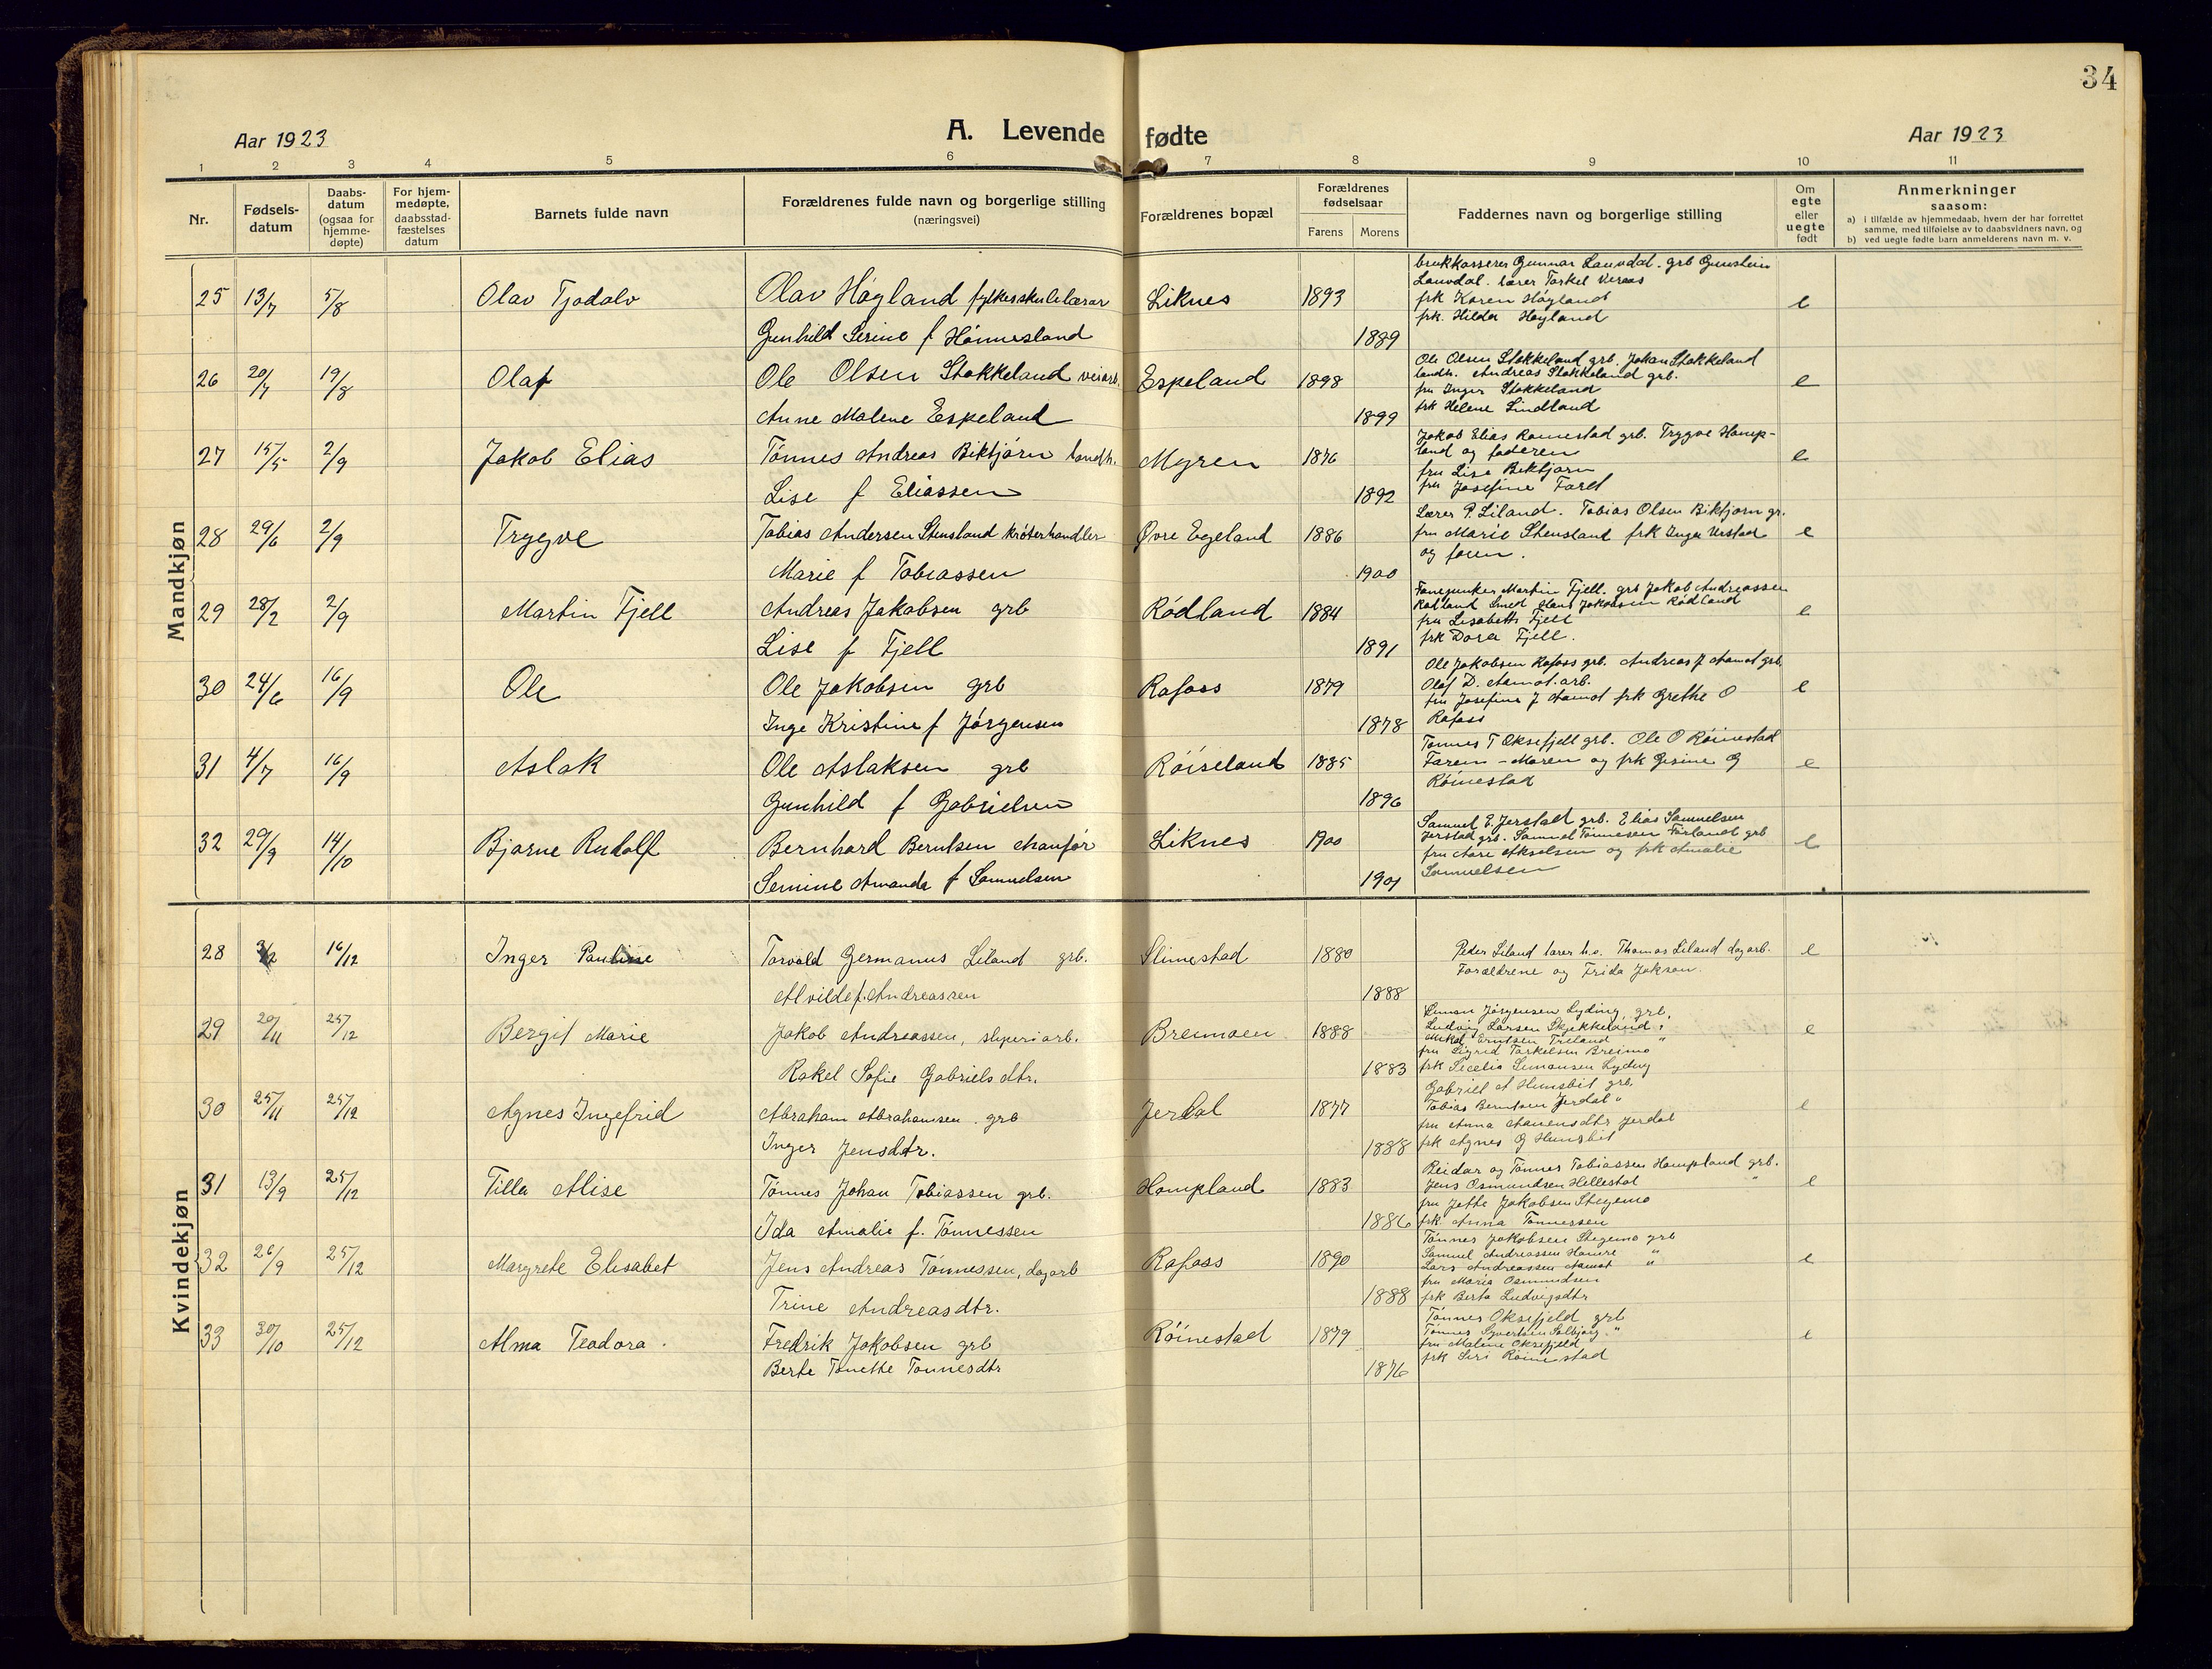 34
Aar 1923
A. Levende fødte
Aar 1923
1 2 3 4 5 6 7 8 9 10 11
Nr.
Fødsels-
datum
Daabs-
datum
(ogsaa for
hjemme-
døpte)
For hjem-
medøpte,
daabsstad-
fæstelses
datum
Barnets fulde navn
Forældrenes fulde navn og borgerlige stilling
(næringsvei)
Forældrenes bopæl
Forældrenes
fødselsaar
Farens Morens
Faddernes navn og borgerlige stilling
Om
egte
eller
uegte
født
Anmerkninger
saasom:
a) i tilfælde av hjemmedaab, hvem der har forrettet
samme, med tilføielse av to daabsvidners navn, og
b) ved uegte fødte barn anmelderens navn m. v.
Mandkjøn
25 13/7 5/8 Olav Tjodolv Olav Høgland fylkesskulelærar Liknes 1893 e
Gunhild Serine f Hönnesland 1889
brukkasserer Gunnar Lauvdal. grb Gunstein
Lauvdal. lærer Torkel
frk Karen Høyland
frk. Hilda Høyland
26 20/7 19/8 Olaf Ole Olsen Stokkeland veiarb. Espeland 1898 e
Anne Malene Espeland 1899
Ole Olsen Stokkeland grb. Johan Stokkeland
landh. Andreas Stokkeland grb.
fru Inger Stokkeland
frk Helene Lindland
27 15/5 2/9 Jakob Elias Tönnes Andreas Biktjørn landh. Myren 1876 e
Lise f Eliassen 1892
Jakob Elias Romestad grb. Trygve Homp-
land og faderen
fru Lise Biktjørn
fru Josefine
28 29/6 2/9 Trygve Tobias Andersen Stensland krøterhandler Øvre Egeland 1886 e
Marie f Tobiassen 1900
Lærer P. Liland. Tobias Olsen Biktjørn gr.
fru Marie Stensland frk Inga
og faren.
29 28/2 2/9 Martin Fjell Andreas Jakobsen grb Rødland 1884 e
Lise f Fjell 1891
Fanejunker Martin Fjell. grb Jakob Andreassen
Rødland Smed Hans Jakobsen Rødland
fru Lisabeth Fjell
frk Dora Fjell.
30 24/6 16/9 Ole Ole Jakobsen grb Rafoss 1879 e
Inge Kristine f Jørgensen 1878
Ole Jakobsen Rafoss grb. Andreas J Aamot grb.
Olaf D. Aamot. arb.
fru Josefine J Aamot frk Grethe O
Rafoss
31 4/7 16/9 Aslak Ole Aslaksen grb Röiseland 1885 e
Gunhild f Gabrielsen 1896
Tønnes T Oksefjell grb. Ole O Röinestad
Faren - Moren og frk Gesine G
Röinestad
32 29/9 14/10 Bjarne Rudolf Bernhard Berntsen chauför Liknes 1900 e
Semine Amanda f Samuelsen 1901
Samuel E. Jerstad grb. Elias Samuelsen
Jerstad grb. Samuel Tönnesen Förland grb
fru Aase Akselsen og frk Amalie
Samuelsen
Kvindekjøn
28 16/12 Inger Pauline Torvald Germanus Liland grb. Slimestad 1880 e
Alvilde f. Andreassen 1888
Peder Liland lærer h.o. Thomas Liland dagarb.
Forældrene og Frida Jakson.
29 20/11 25/12 Bergit Marie Jakob Andreassen, sliperiarb. Breimoen 1888 e
Rakel Sofie Gabrielsdtr. 1883
Simon Jörgensen Lyding, grb.
Ludvig Larsen Skjekkeland "
Mikal Erntsen Treland "
fru Sigrid Torkelsen Breimo
frk Secelia Simonsen Lyding
30 25/11 25/12 Agnes Ingefrid Abraham Abrahamsen. grb Jerdal 1877 e
Inger Jensdtr. 1888
Gabriel A Hunsbit grb.
Tobias Berntsen Jerdal "
fru Anna Aanensdtr Jerdal
frk Agnes G Hunsbit
31 13/9 25/12 Tilla Alise Tönnes Johan Tobiassen grb. Hompland 1883 e
Ida Amalie f. Tönnessen 1886
Reidar og Tönnes Tobiassen Hompland grb.
Jens Osmundsen Hellestøl "
fru Jette Jakobsen Stegemo
frk. Anna Tønnessen
32 26/9 25/12 Margrete Elisabet Jens Andreas Tönnessen, dagarb Rafoss 1890 e
Trine Andreasdtr. 1888
Tønnes Jakobsen Stegemo grb
Samuel Andreassen Hamre "
Lars Andreassen Aamot "
fru Maria Osmundsen
frk Berta Ludvigsdtr
33 30/10 25/12 Alma Teodora. Fredrik Jakobsen grb Röinestad 1879 e
Berte Tonette Tönnesdtr 1876
Tønnes Oksefjeld grb
Tønnes Syvertsen Solbjørg. "
fru Malene Oksefjeld
frk Siri Röinestad